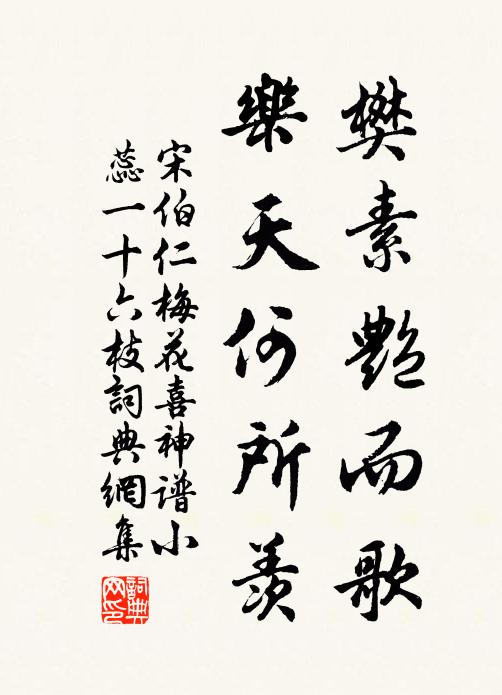 樊素艷而歌
樂天何所羨
宋伯仁梅花喜神谱小
蕊一十六枝詞典網集
詞典